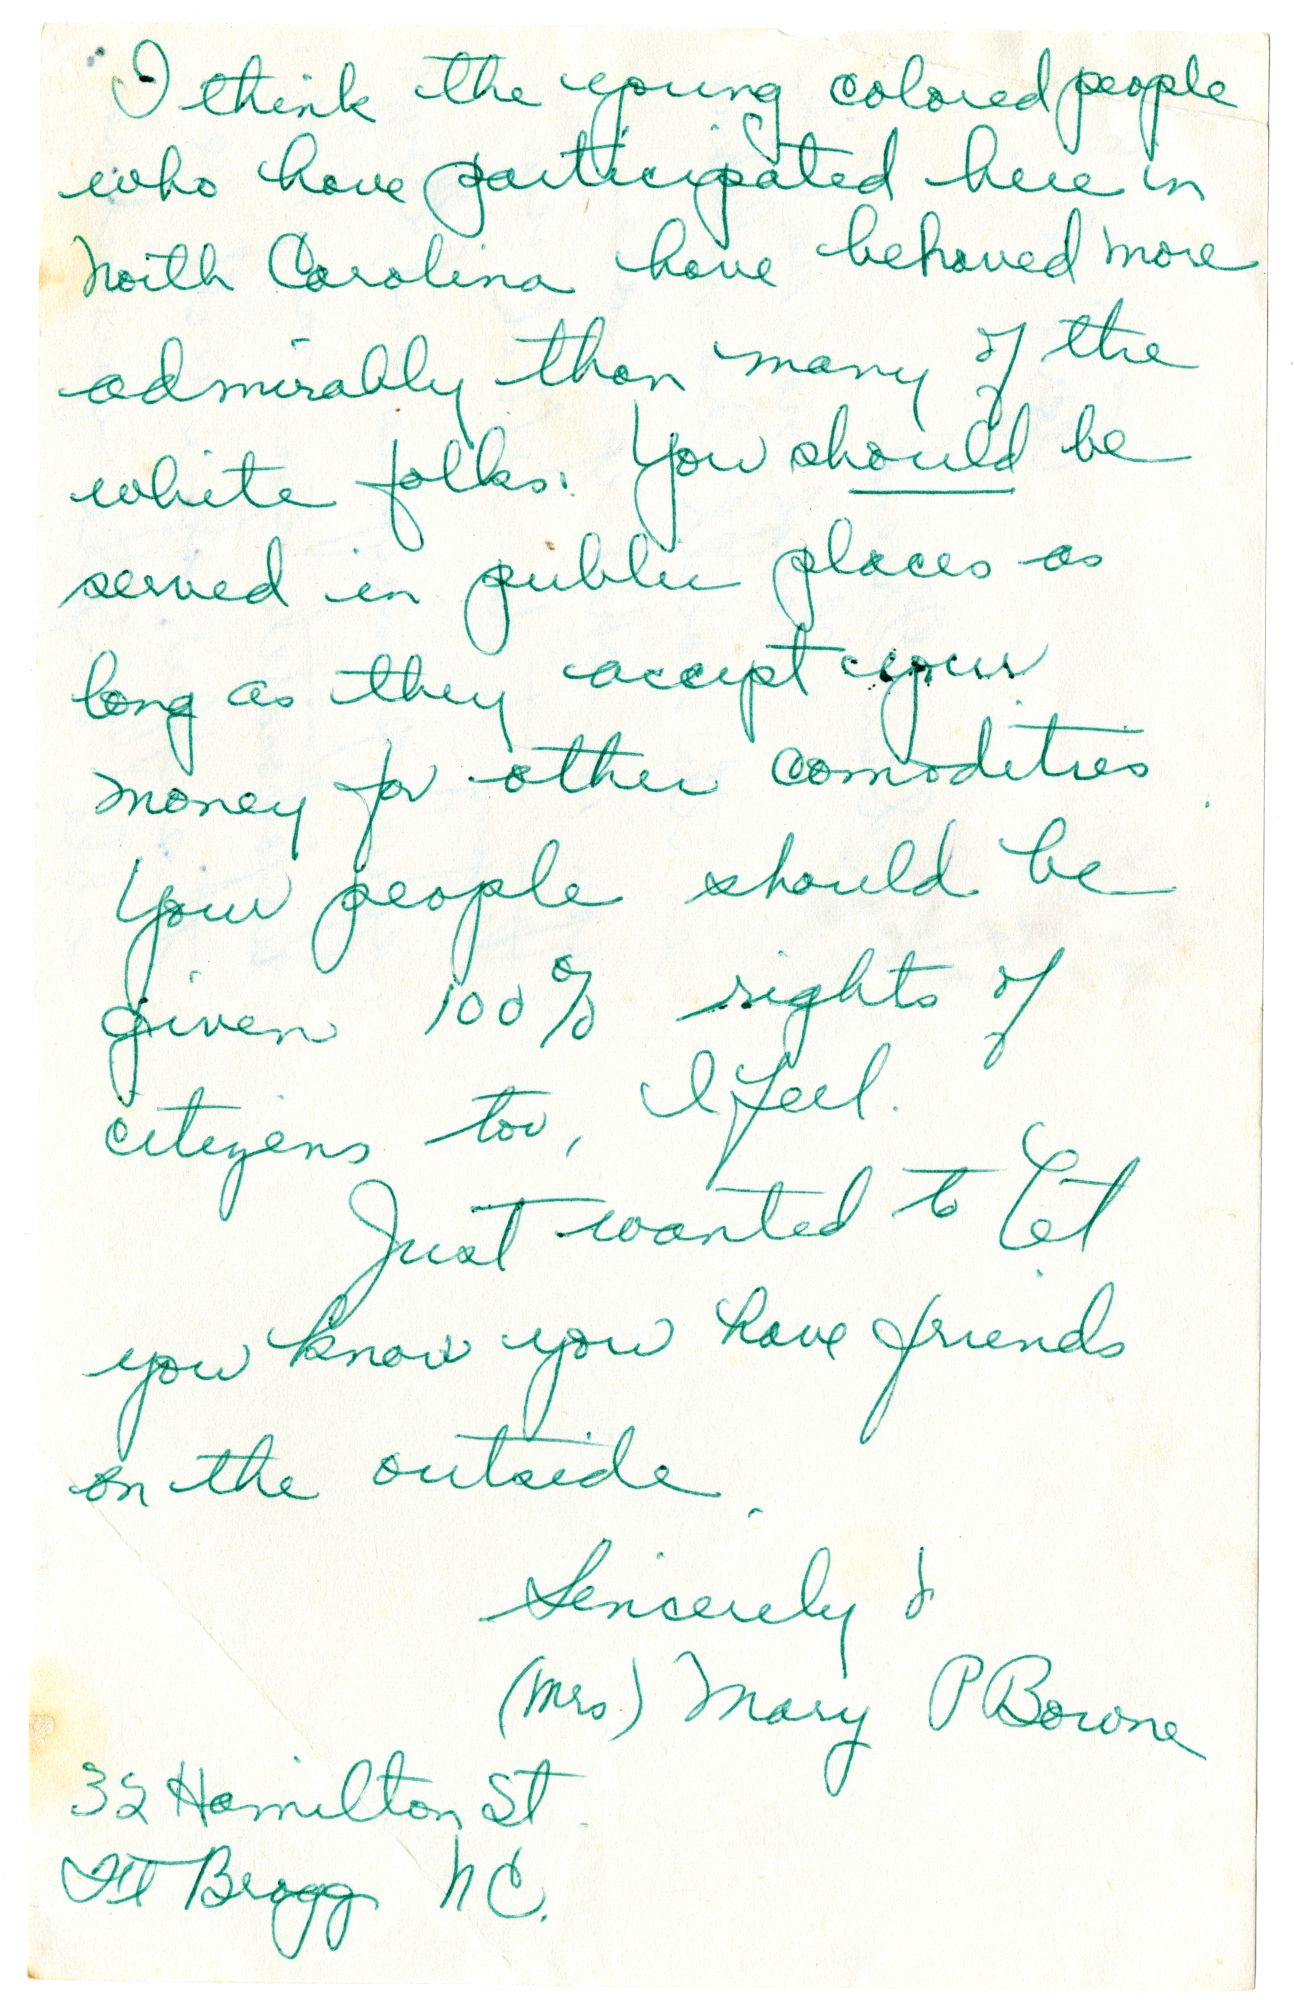 I think the young colored people
who have participated here in
North Carolina have behaved more
admirably than many of the
white folks. You should be
served in public places as
long as they accept your
money for other comodities
Your people should be
given 100% rights of
citizens too, I feel.
Just wanted to let
you know you have friends
on the outside.
Sincerely
(Mrs) Mary P Bowne
32 Hamilton St.
Ft Bragg NC.